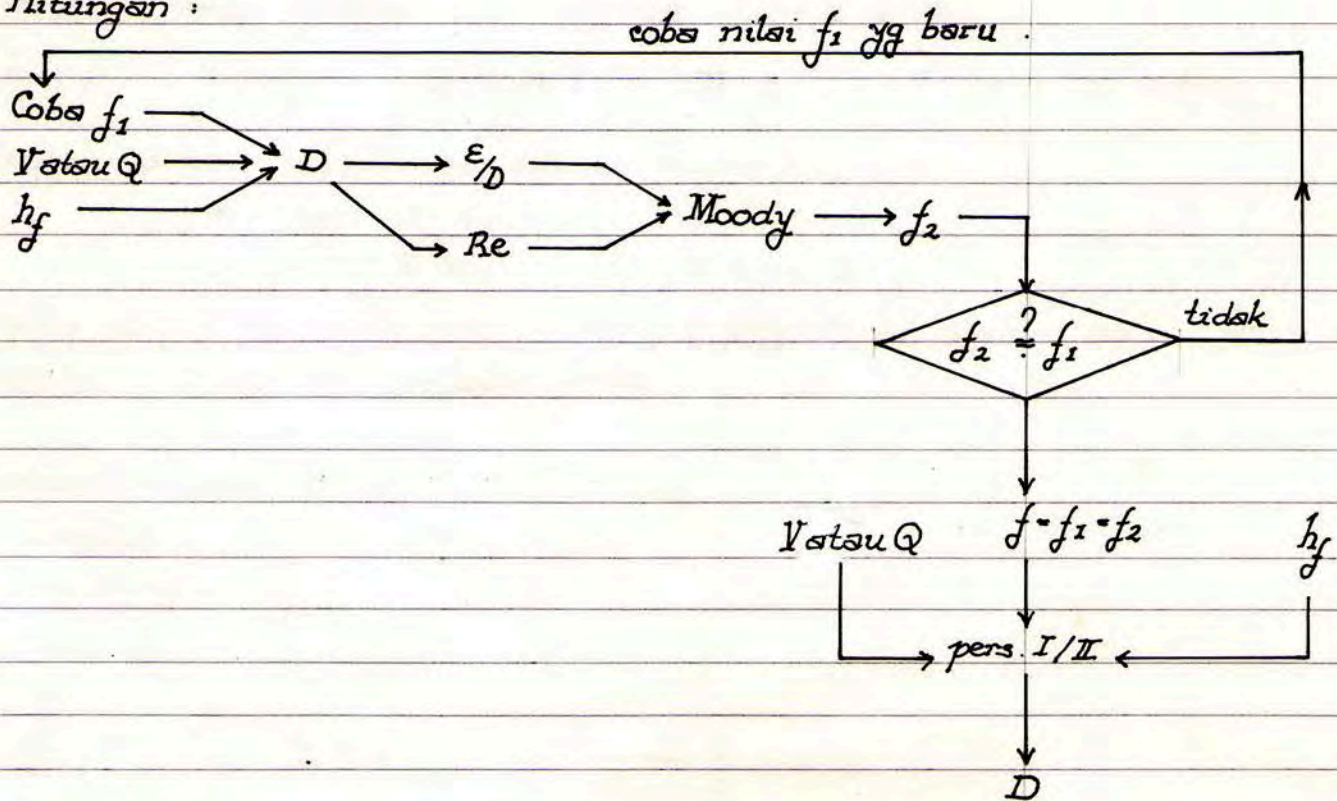 Hitungan :
coba nilai f₁ yg baru .
Coba f₁
V atau Q
h_f
D
ε/D
Re
Moody
f₂
f₂ ≟ f₁
tidak
V atau Q
f = f₁ = f₂
h_f
pers. I/II
D